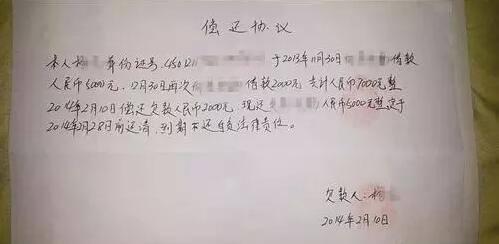 偿还协议
本人杨 身份证号:450121 于2013年11月30日 借款
人民币5000元,12月30日再次 借款2000元 共计人民币7000元整
2014年2月10日偿还欠款人民币2000元,现还 人民币5000元整定于
2014年2月28日前还清,到期不还自负法律责任。
欠款人:杨
2014年2月10日